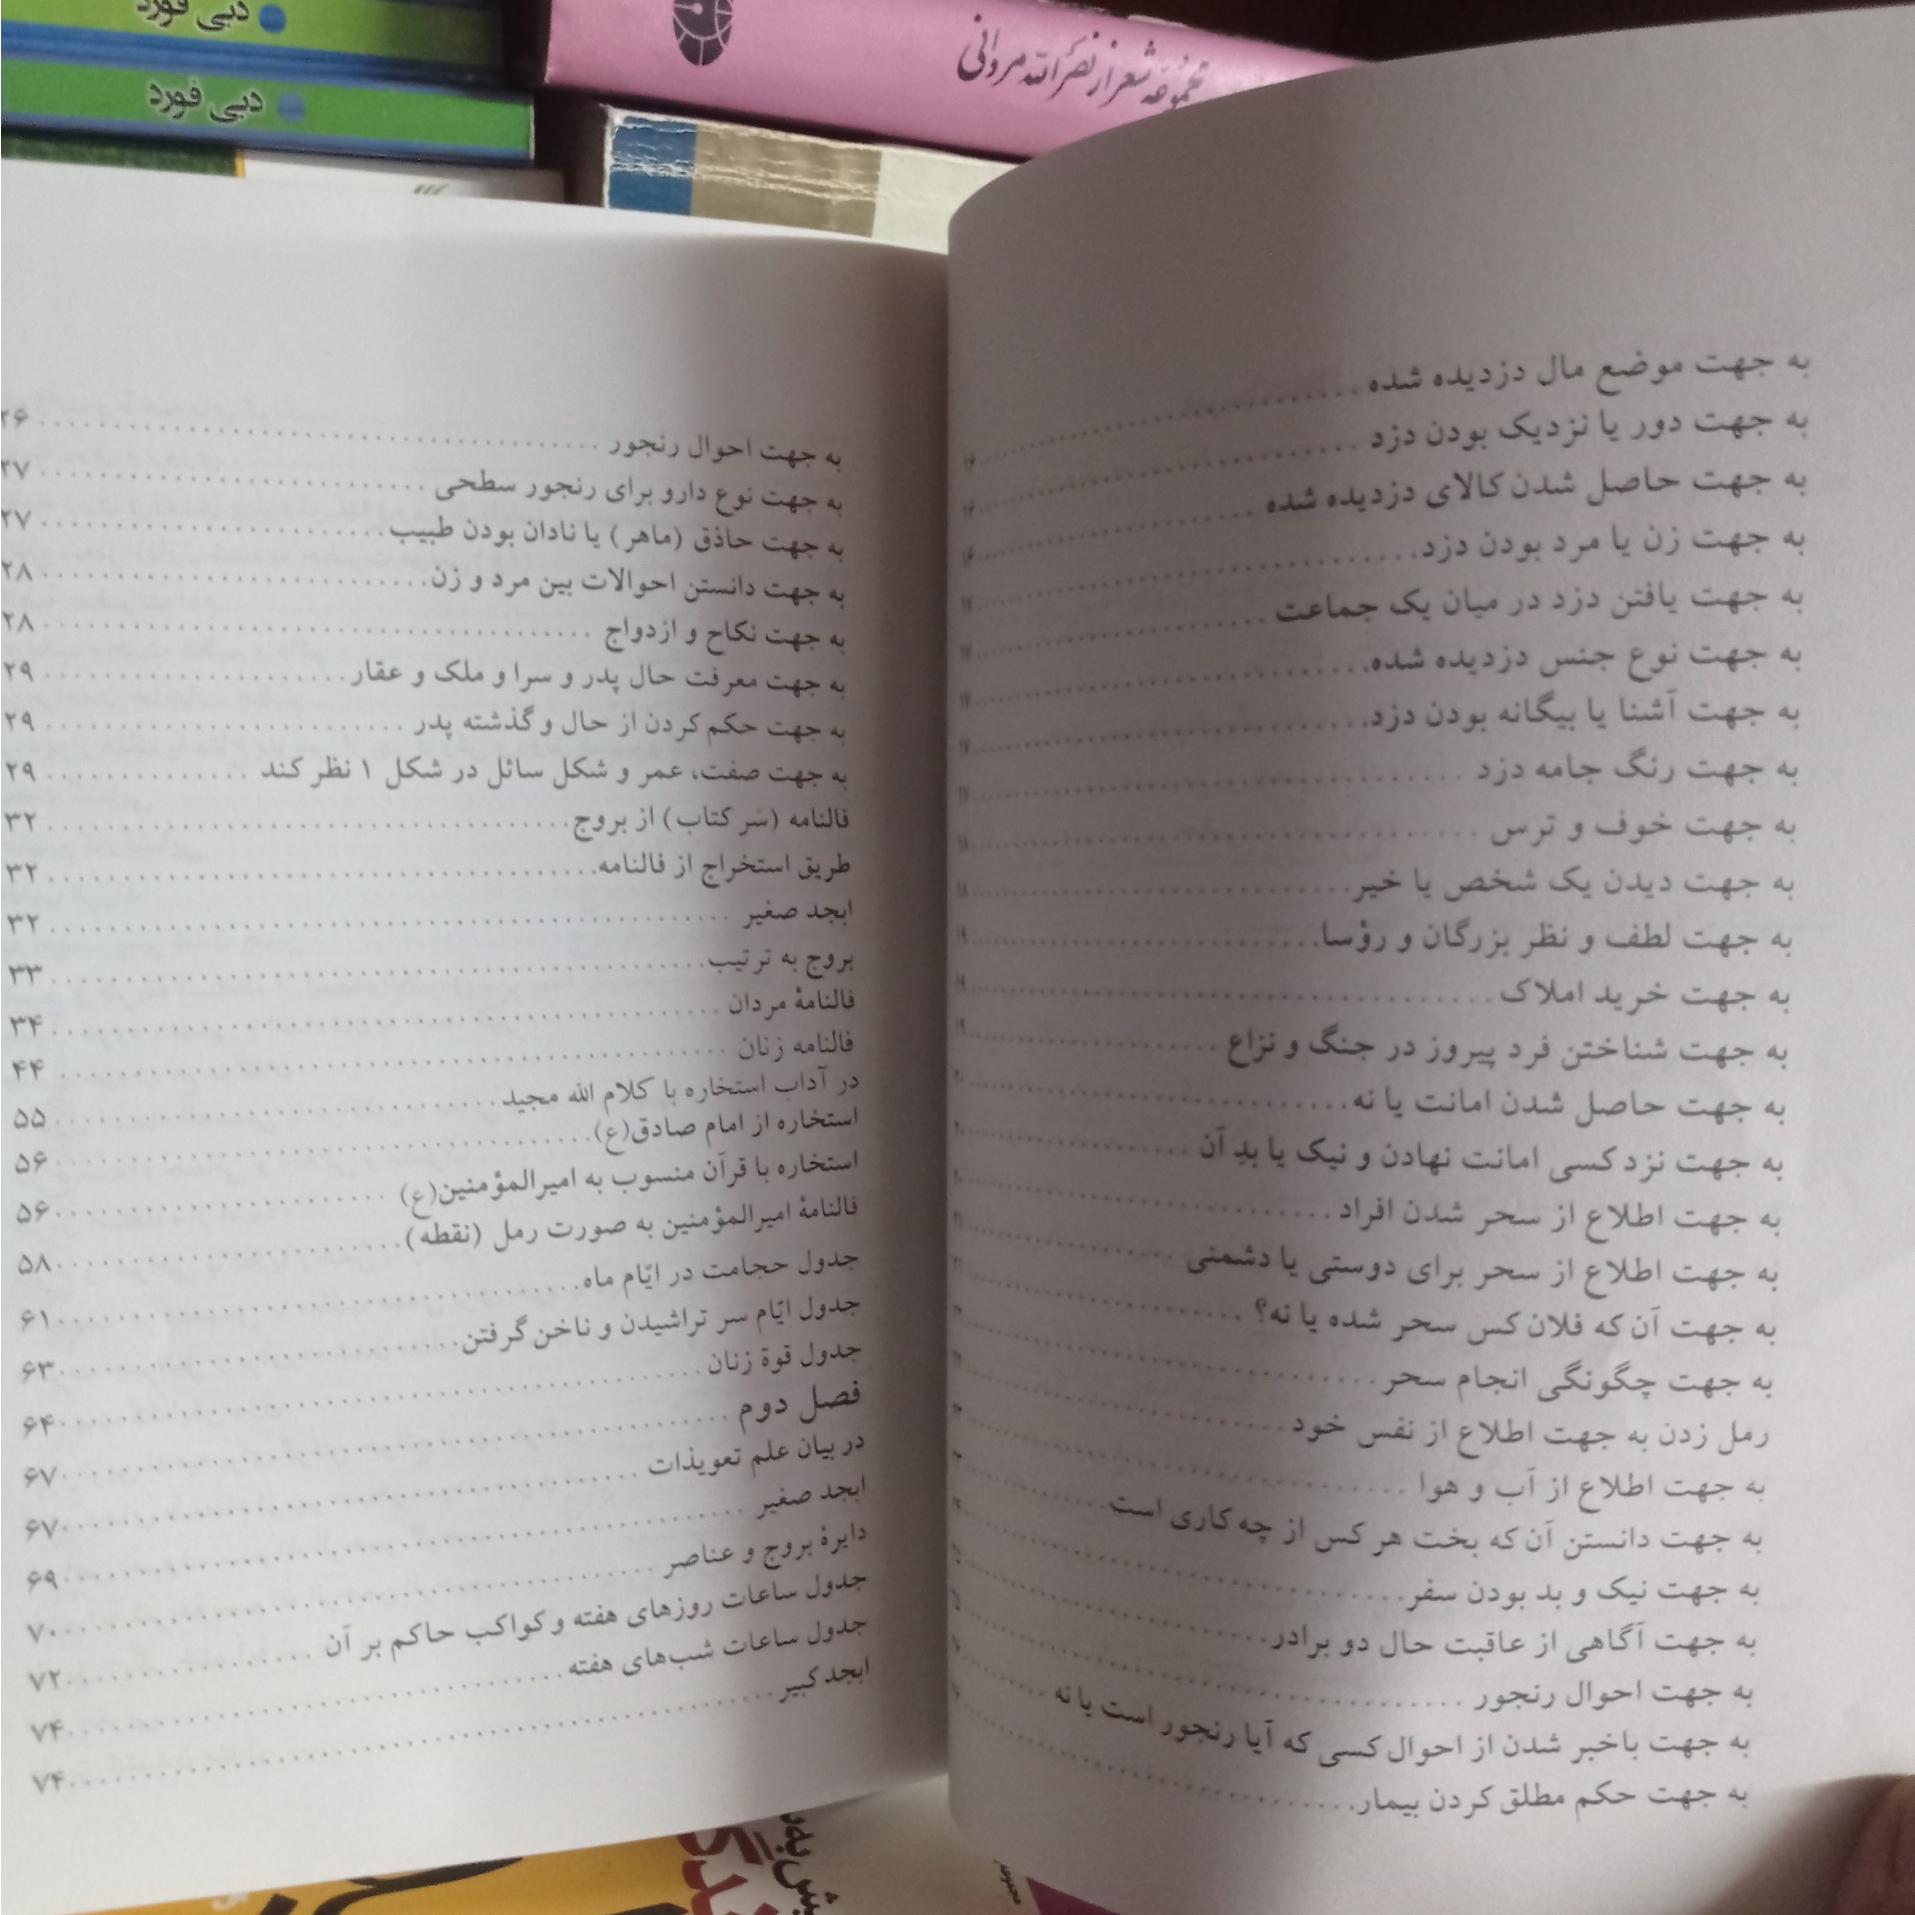 دبی فورد
دبی فورد
مجموعه شعر از نصرالله مردانی
به جهت موضع مال دزدیده شده
به جهت دور یا نزدیک بودن دزد ۱۶
به جهت حاصل شدن کالای دزدیده شده ۱۶
به جهت زن یا مرد بودن دزد ۱۶
به جهت یافتن دزد در میان یک جماعت ۱۷
به جهت نوع جنس دزدیده شده ۱۷
به جهت آشنا یا بیگانه بودن دزد ۱۷
به جهت رنگ جامه دزد ۱۷
به جهت خوف و ترس ۱۷
به جهت دیدن یک شخص یا خیر ۱۸
به جهت لطف و نظر بزرگان و رؤسا ۱۸
به جهت خرید املاک ۱۹
به جهت شناختن فرد پیروز در جنگ و نزاع ۱۹
به جهت حاصل شدن امانت یا نه ۱۹
به جهت نزد کسی امانت نهادن و نیک یا بدِ آن ۲۰
به جهت اطلاع از سحر شدن افراد ۲۰
به جهت اطلاع از سحر برای دوستی یا دشمنی ۲۰
به جهت آن که فلان کس سحر شده یا نه؟ ۲۱
به جهت چگونگی انجام سحر
رمل زدن به جهت اطلاع از نفس خود
به جهت اطلاع از آب و هوا
به جهت دانستن آن که بخت هر کس از چه کاری است
به جهت نیک و بد بودن سفر
به جهت آگاهی از عاقبت حال دو برادر
به جهت احوال رنجور
به جهت باخبر شدن از احوال کسی که آیا رنجور است یا نه
به جهت حکم مطلق کردن بیمار
به جهت احوال رنجور ۲۶
به جهت نوع دارو برای رنجور سطحی ۲۷
به جهت حاذق (ماهر) یا نادان بودن طبیب ۲۷
به جهت دانستن احوالات بین مرد و زن ۲۸
به جهت نکاح و ازدواج ۲۸
به جهت معرفت حال پدر و سرا و ملک و عقار ۲۹
به جهت حکم کردن از حال و گذشته پدر ۲۹
به جهت صفت، عمر و شکل سائل در شکل ۱ نظر کند ۲۹
فالنامه (سَر کتاب) از بروج ۳۲
طریق استخراج از فالنامه ۳۲
ابجد صغیر ۳۲
بروج به ترتیب ۳۳
فالنامهٔ مردان ۳۴
فالنامه زنان ۴۴
در آداب استخاره با کلام الله مجید ۵۵
استخاره از امام صادق(ع) ۵۶
استخاره با قرآن منسوب به امیرالمؤمنین(ع) ۵۶
فالنامهٔ امیرالمؤمنین به صورت رمل (نقطه) ۵۸
جدول حجامت در ایّام ماه ۶۱
جدول ایّام سر تراشیدن و ناخن گرفتن ۶۳
جدول قوة زنان ۶۴
فصل دوم ۶۷
در بیان علم تعویذات ۶۷
ابجد صغیر ۶۹
دایرهٔ بروج و عناصر ۷۰
جدول ساعات روزهای هفته و کواکب حاکم بر آن ۷۲
جدول ساعات شب‌های هفته ۷۴
ابجد کبیر ۷۴